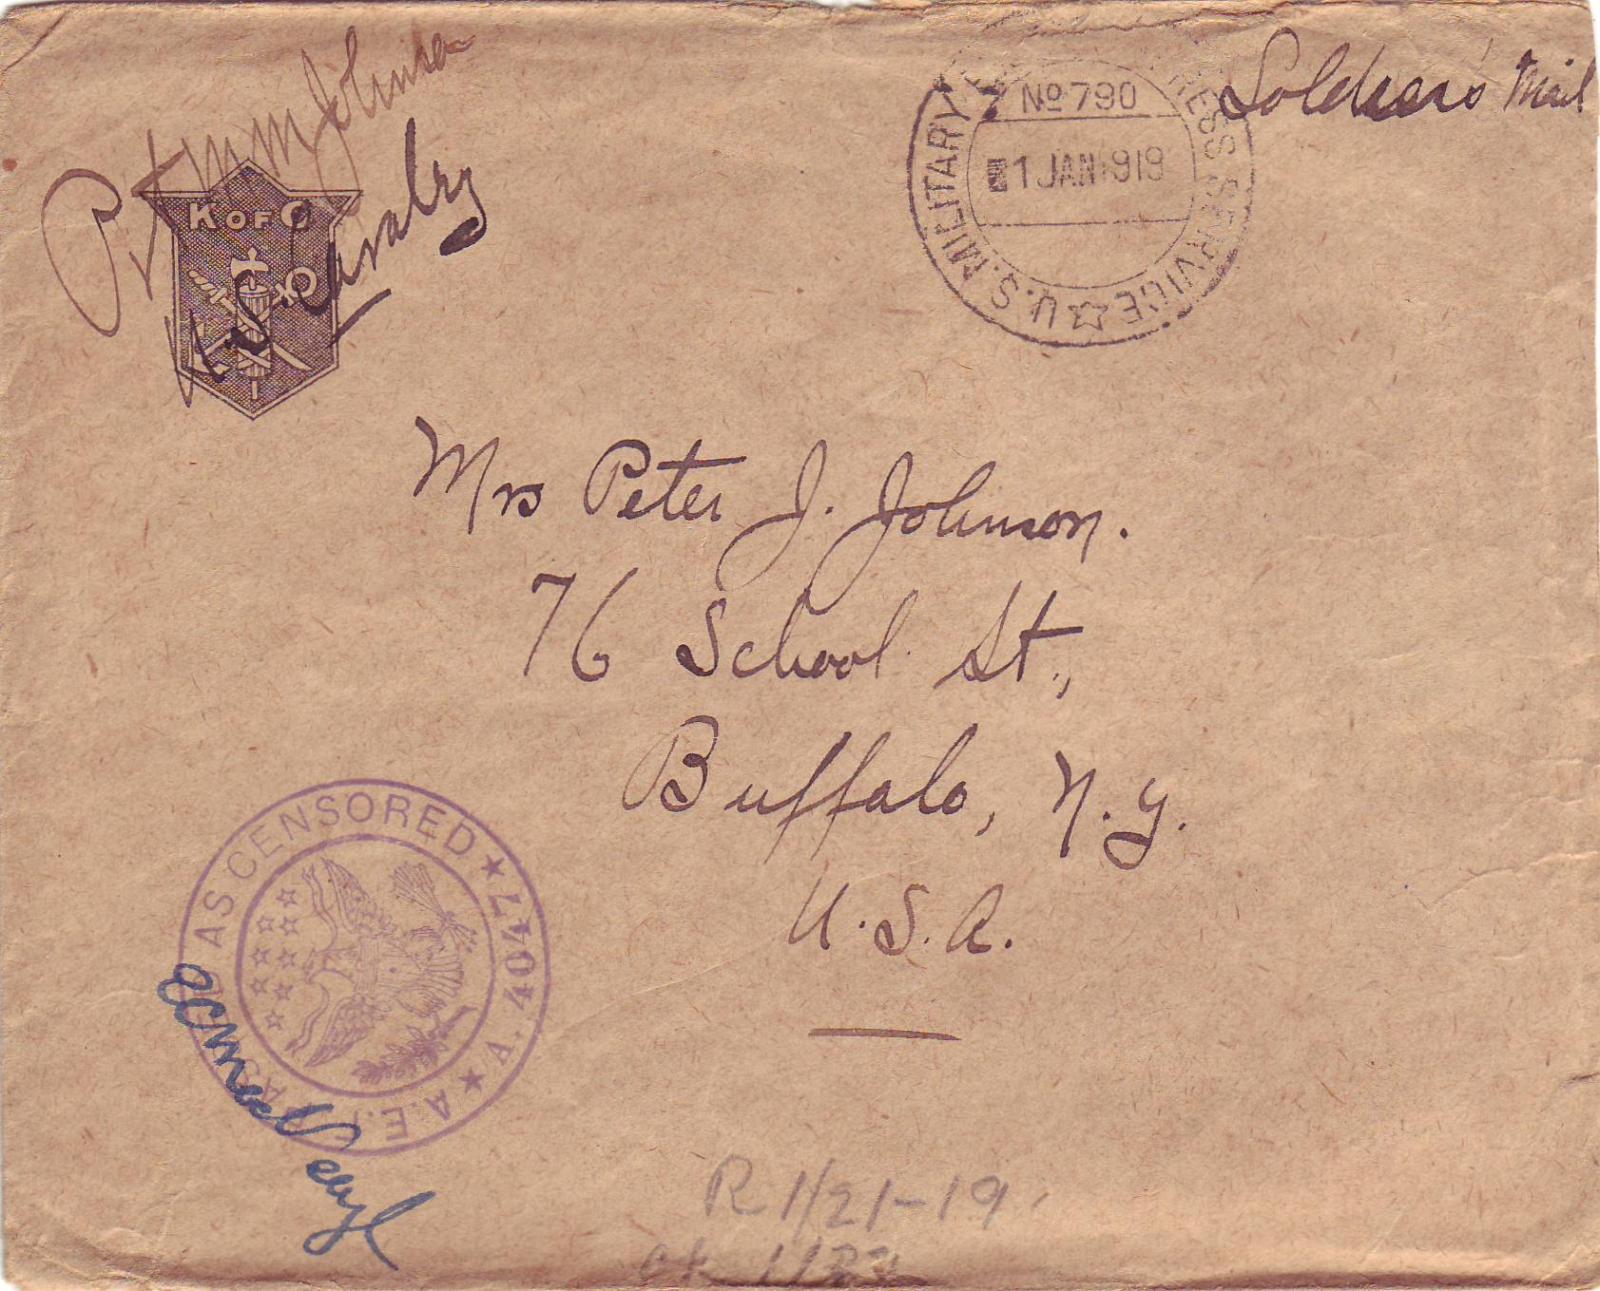 Pvt Wm M Johnson
U.S. Cavalry
K OF C
U.S. MILITARY EXPRESS SERVICE
No 790
1 JAN 1919
Soldier's Mail
Mrs Peter J. Johnson.
76 School St.,
Buffalo, N.Y.
U.S.A.
PASSED AS CENSORED
A. 4047
A.E.F.
R 1/21-19